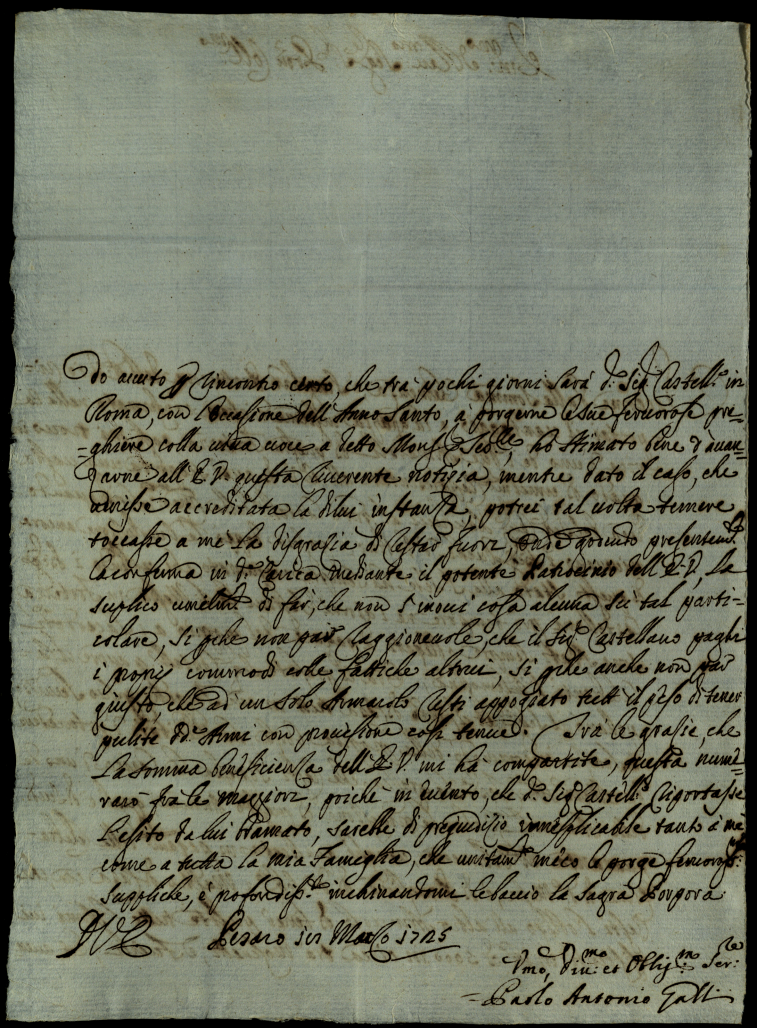 do avuto p l'incontro certo, che trà pochi giorni sarà d.º Sig.r Castell.º in
Roma, con l'occasione dell'Anno Santo, a porgerne le sue fervorose pre=
=ghiere colla viva voce a detto Mons.r ho stimato bene d'avan=
zarne all'E. V. questa riverente notizia, mentre dato il caso, che
venisse accreditata la di lui instanza, potrei tal volta temere
toccasse a me la disgrazia di restar fuori, onde godendo presentem.te
la conferma in d.ª carica mediante il potente Patrocinio dell'E. V., la
suplico umilm.te di far, che non s'inovi cosa alcuna sù tal parti=
colare, sì p̱che non par raggionevole, che il Sig.r Castellano paghi
i proprij commodi colle fattiche altrui, sì p̱che anche non par
giusto, che ad un solo Armarolo resti appoggiato tutt'il peso di tener
pulite dd.e Armi con provisione così tenue. Trà le grazie, che
la somma beneficienza dell'E. V. mi hà compartite, questa nume=
rarò frà le maggiori, poiche in evento, che d.º Sig.r Castell.º riportasse
l'esito da lui bramato, sarebbe di pregiudizio inesplicabile tanto à me
come a tutta la mia Famiglia, che unitam.te meco le porge fervorosiss.me
suppliche, e profondiss.te inchinandomi le bacio la Sagra Porpora
Pesaro Marzo 1725
Vmo, Divmo: et Obligmo: Serre:
Paolo Antonio Galli